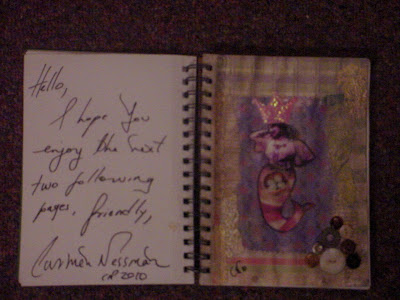 Hello,
I hope you
enjoy the next
two following
pages, friendly,
Carmen Nessman
2010